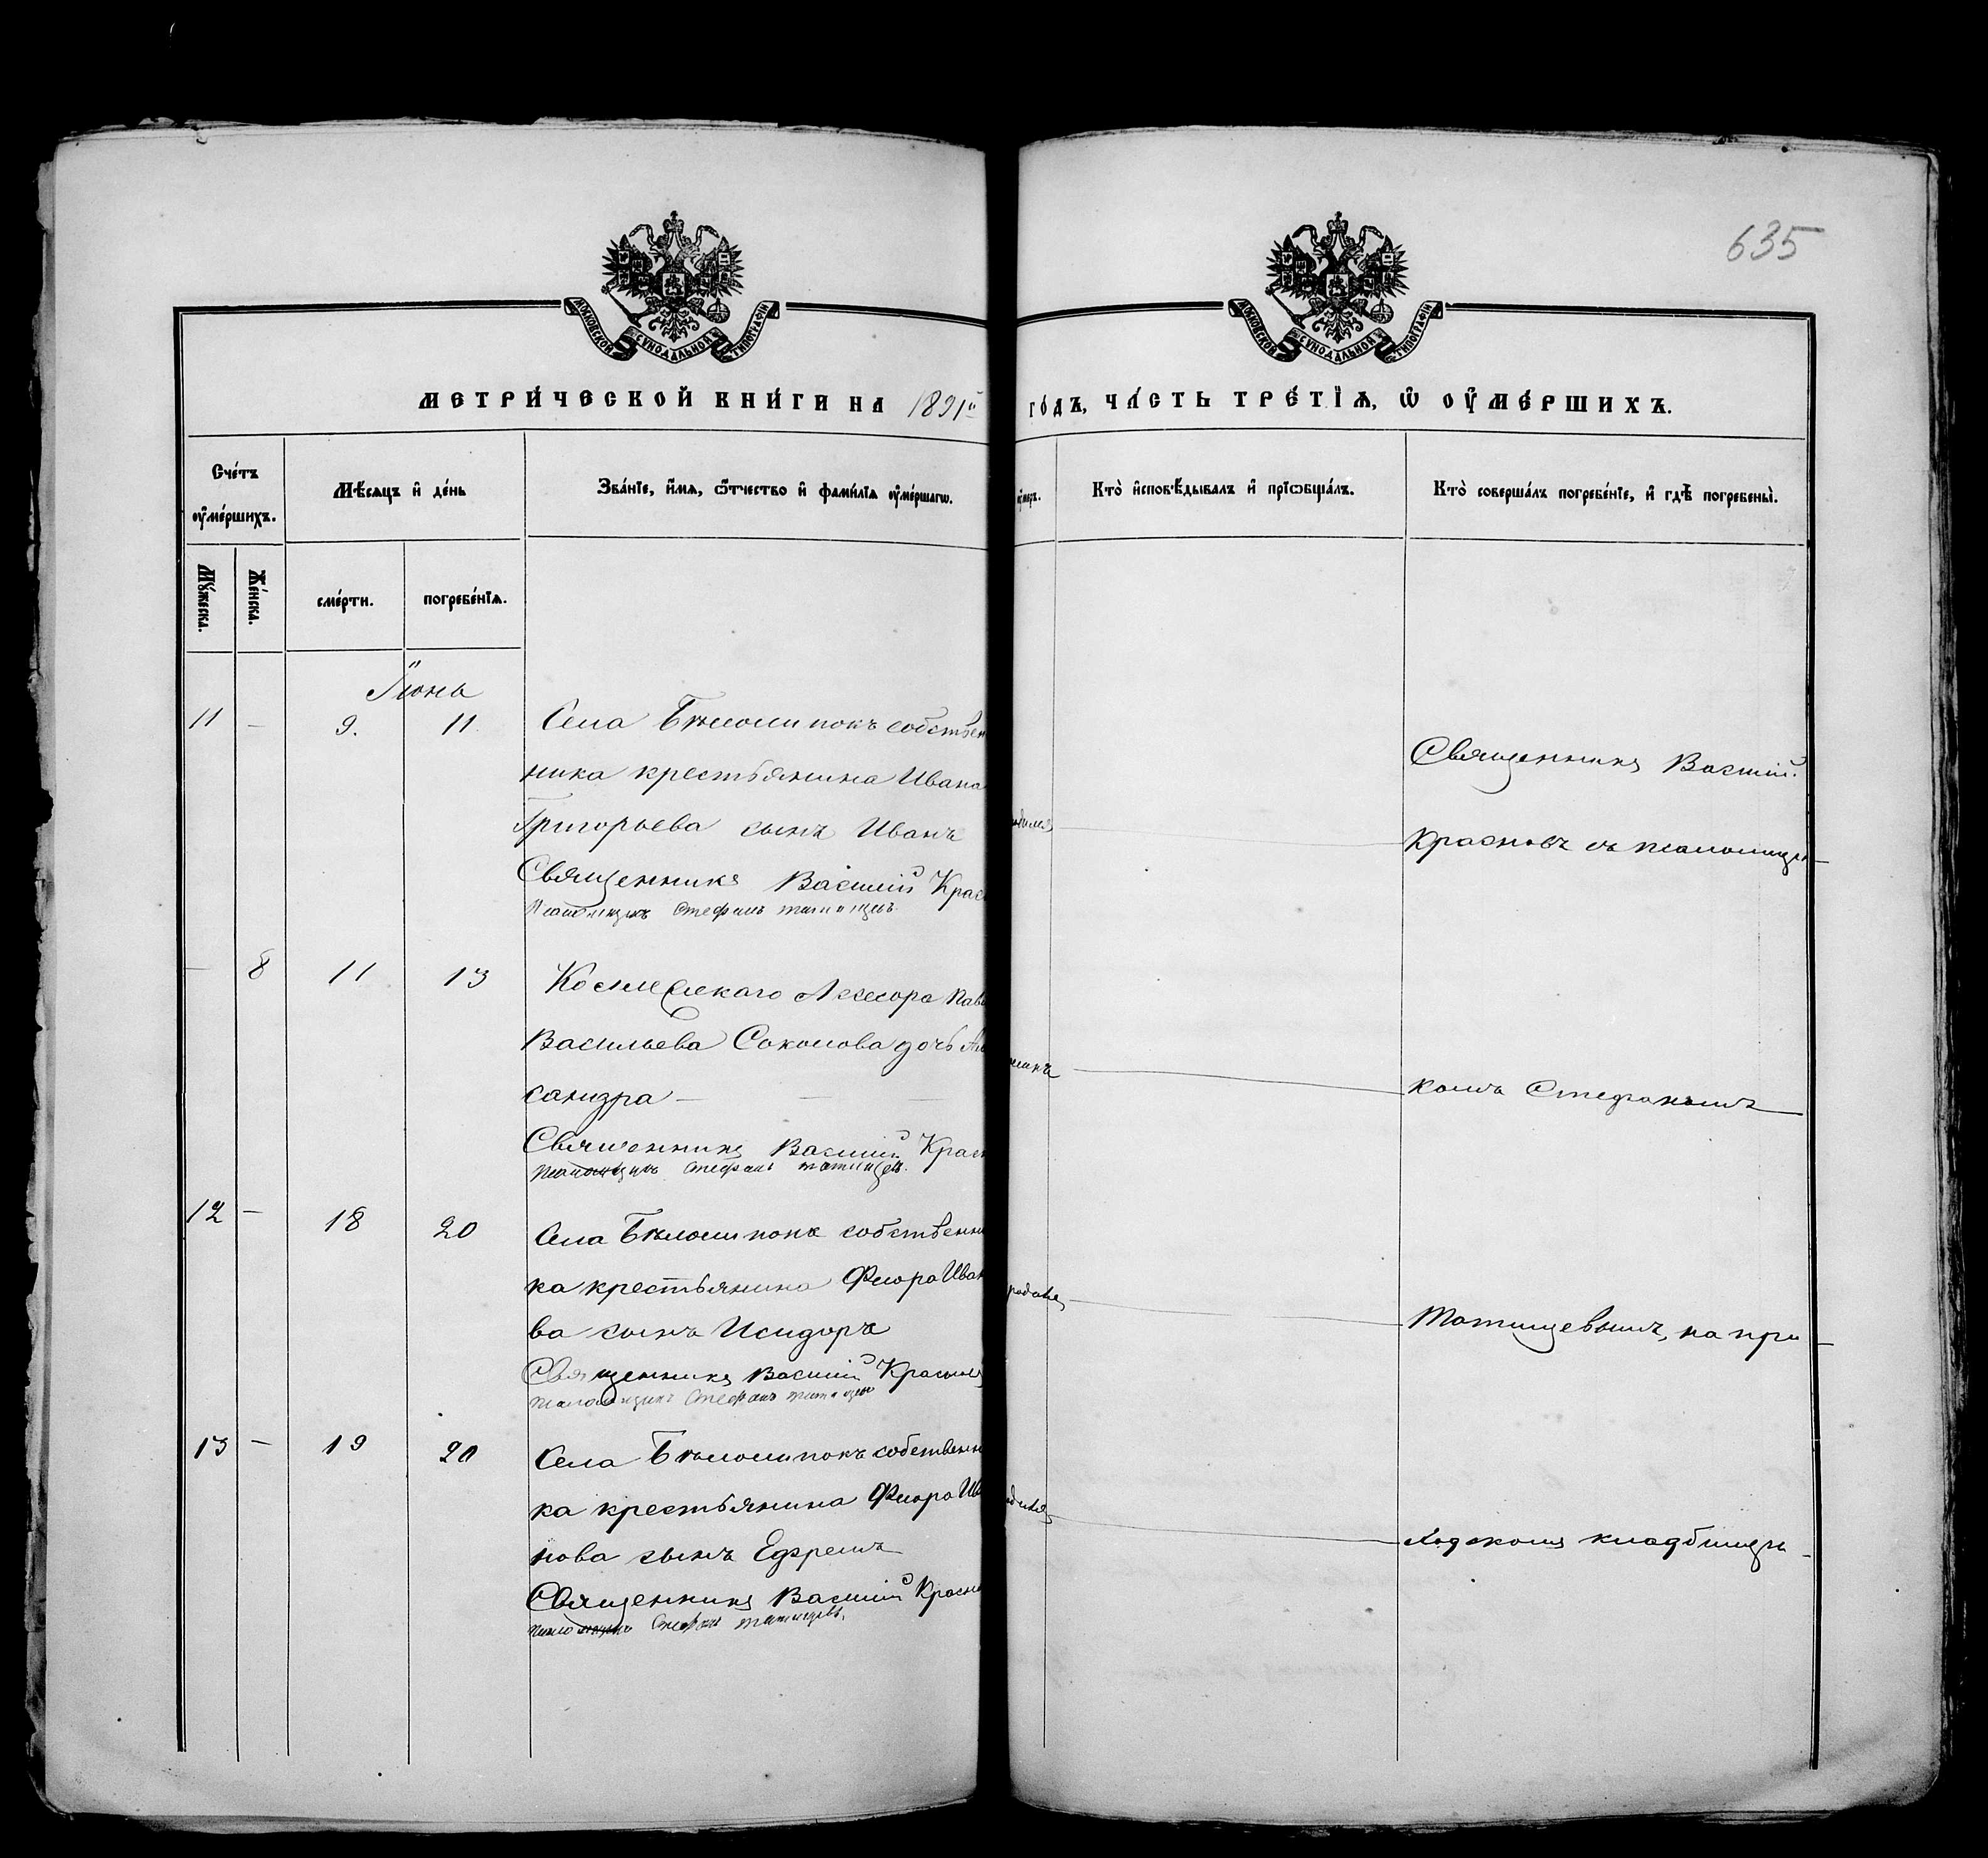 635
МОСКОВСКОЙ СѴНОДАЛЬНОЙ ТИПОГРАФІИ
МОСКОВСКОЙ СѴНОДАЛЬНОЙ ТИПОГРАФІИ
МЕТРИ́ЧЕСКОЙ КНИ́ГИ НА 1891й
ГО́ДЪ, ЧА́СТЬ ТРЕ́ТЇѦ, Ѡ҆ ОУ҆МЕ́РШИХЪ.
Сче́тъ
оу҆ме́ршихъ.
Мѣ́сѧцъ и҆ де́нь
Зва́нїе, и҆́мѧ, ѻ҆́тчество и҆ фами́лїѧ оу҆ме́ршагѡ.
Кто̀ и҆сповѣ́дывалъ и҆ прїѡбща́лъ.
Кто̀ соверша́лъ погребе́нїе, и҆ гдѣ̀ погребены̀.
Мꙋ́жеска.
Же́нска.
сме́рти.
погребе́нїѧ.
Іюнь
11 — 9. 11. Села Бѣлошипокъ собствен
ника крестьянина Ивана
Григорьева сынъ Иванъ
Священникъ Василій Крас
Псаломщикъ Стефанъ Татищевъ.
Священникъ Василій
Красновъ съ псаломщи—
— 8 11 13 Коллежскаго Ассесора Пав
Васильева Соколова дочь Але
сандра — — —
Священникъ Василій Красн
Псаломщикъ Стефанъ Татищевъ.
комъ Стефаномъ
12 — 18 20 Села Бѣлошипокъ собственни
ка крестьянина Флора Иван
ва сынъ Исидоръ
Священникъ Василій Краснов
Псаломщикъ Стефанъ Татищевъ
Татищевымъ, на при—
13 — 19 20 Села Бѣлошипокъ собственни
ка крестьянина Флора Ив
нова сынъ Ефремъ
Священникъ Василій Красн
Псаломщикъ Стефанъ Татищевъ.
ходскомъ кладбищѣ